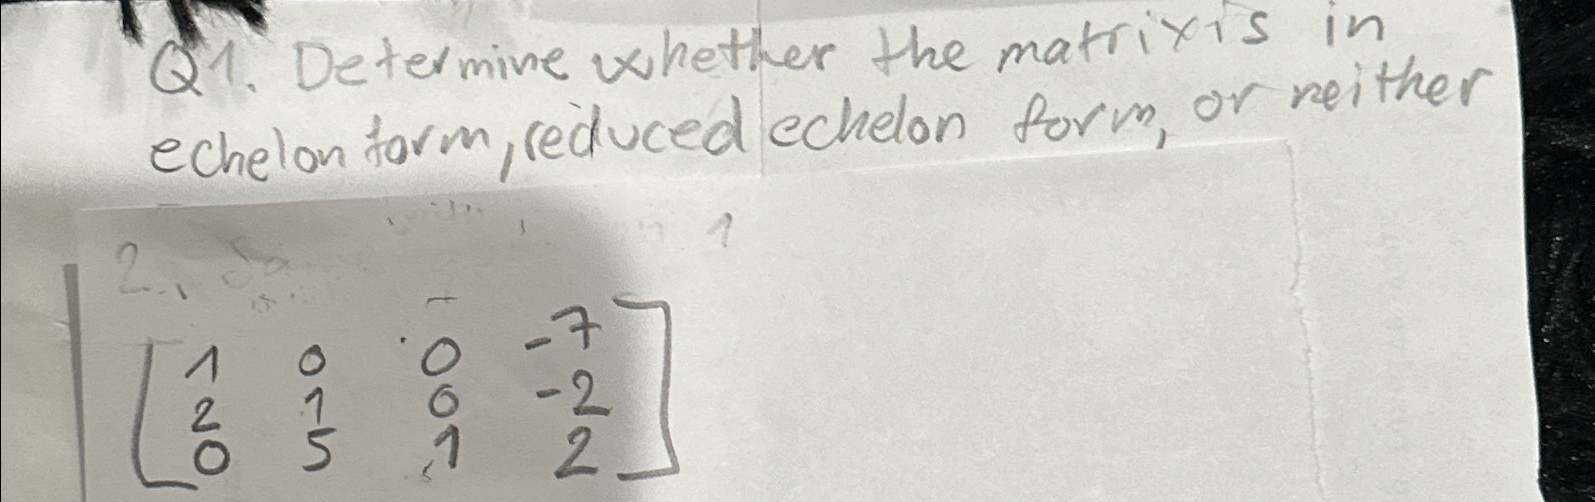 Q1. Determine whether the matrix is in
echelon form, reduced echelon form, or neither
1 0 0 -7
2 1 0 -2
0 5 1 2